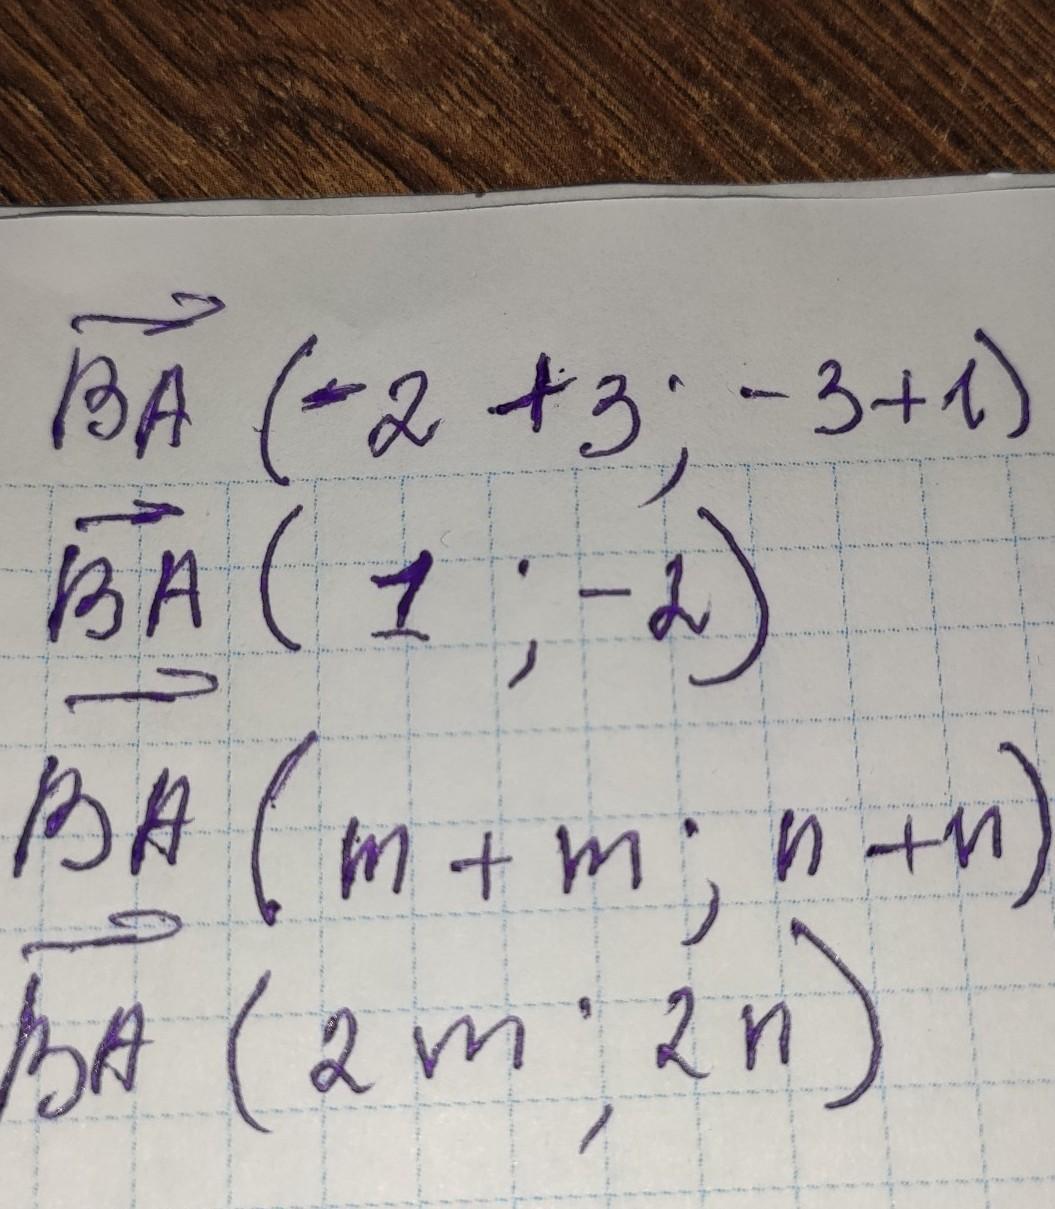 BA (-2 + 3; -3+1)
BA ( 1 ; -2)
BA (m + m; n + n)
BA (2 m ; 2 n)